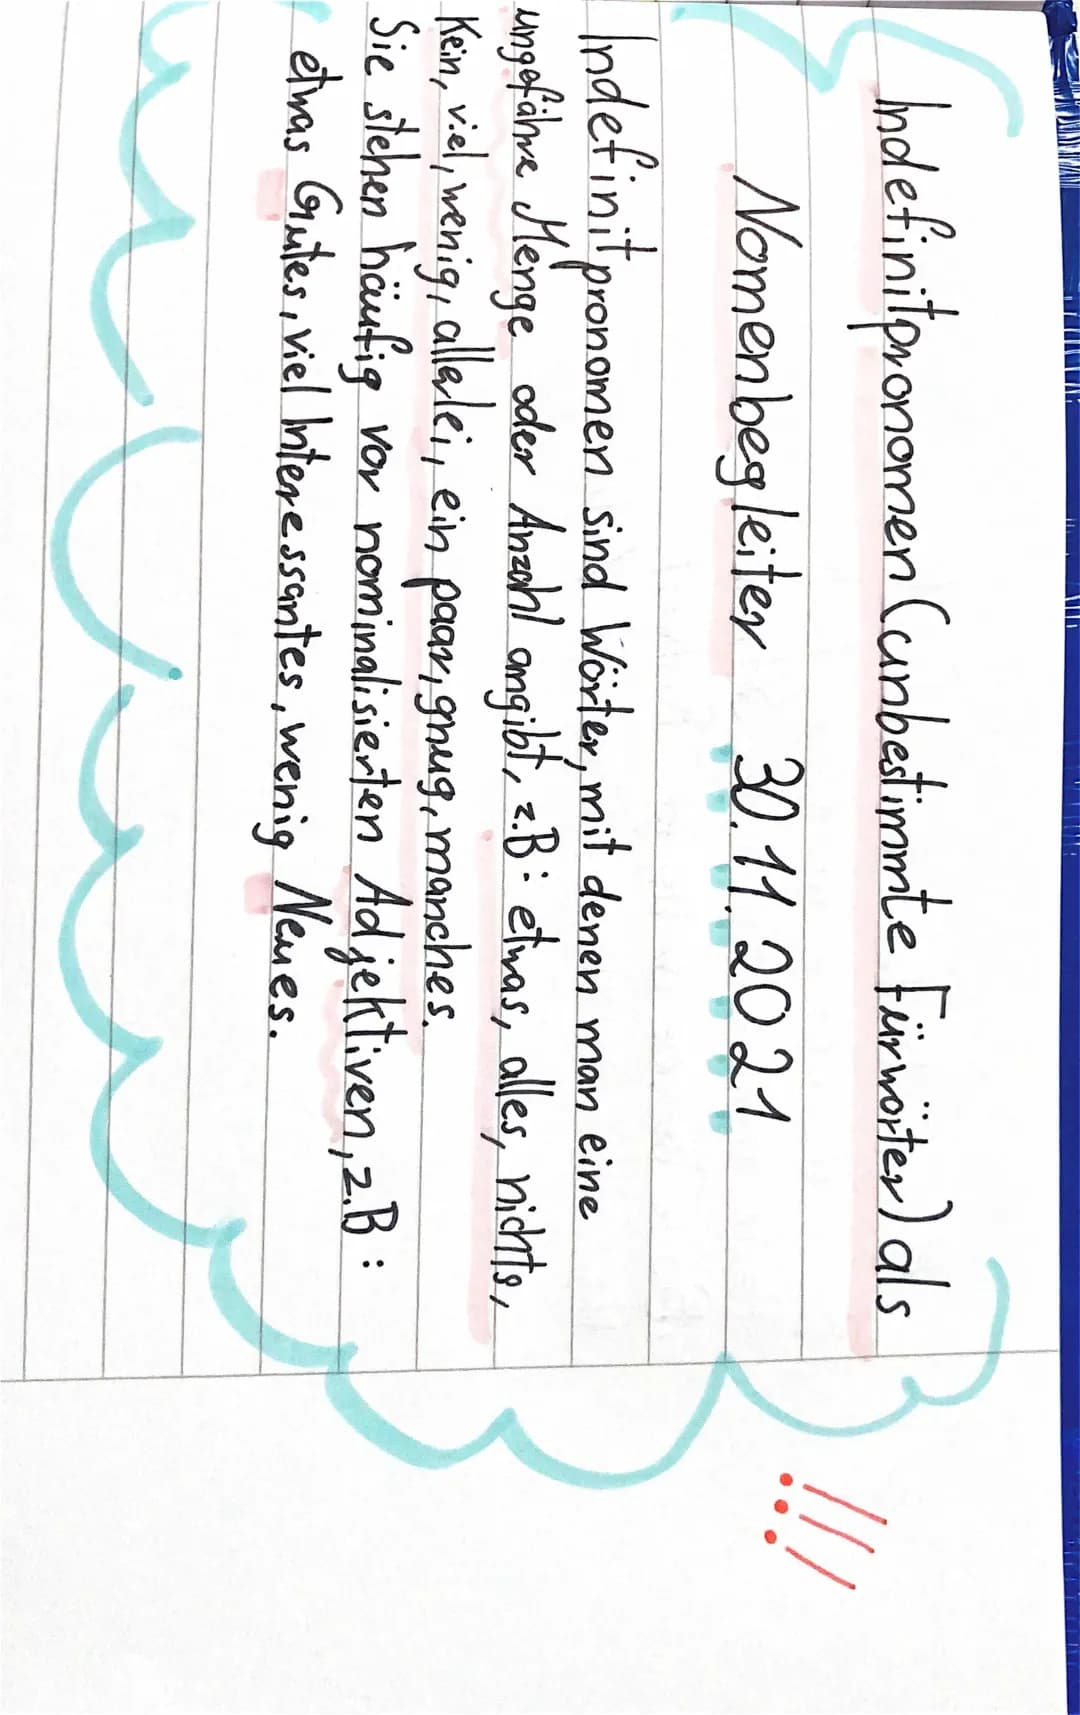 Indefinitpronomen (unbestimmte Fürwörter) als
Nomenbegleiter 30.11.2021
Indefinitpronomen sind Wörter, mit denen man eine
ungefähre Menge oder Anzahl angibt, z.B: etwas, alles, nichts,
Kein, viel, wenig, allerlei, ein paar, gnug, manches.
Sie stehen häufig vor nominalisierten Adjektiven, z.B:
etwas Gutes, viel Interessantes, wenig Neues.
!!!